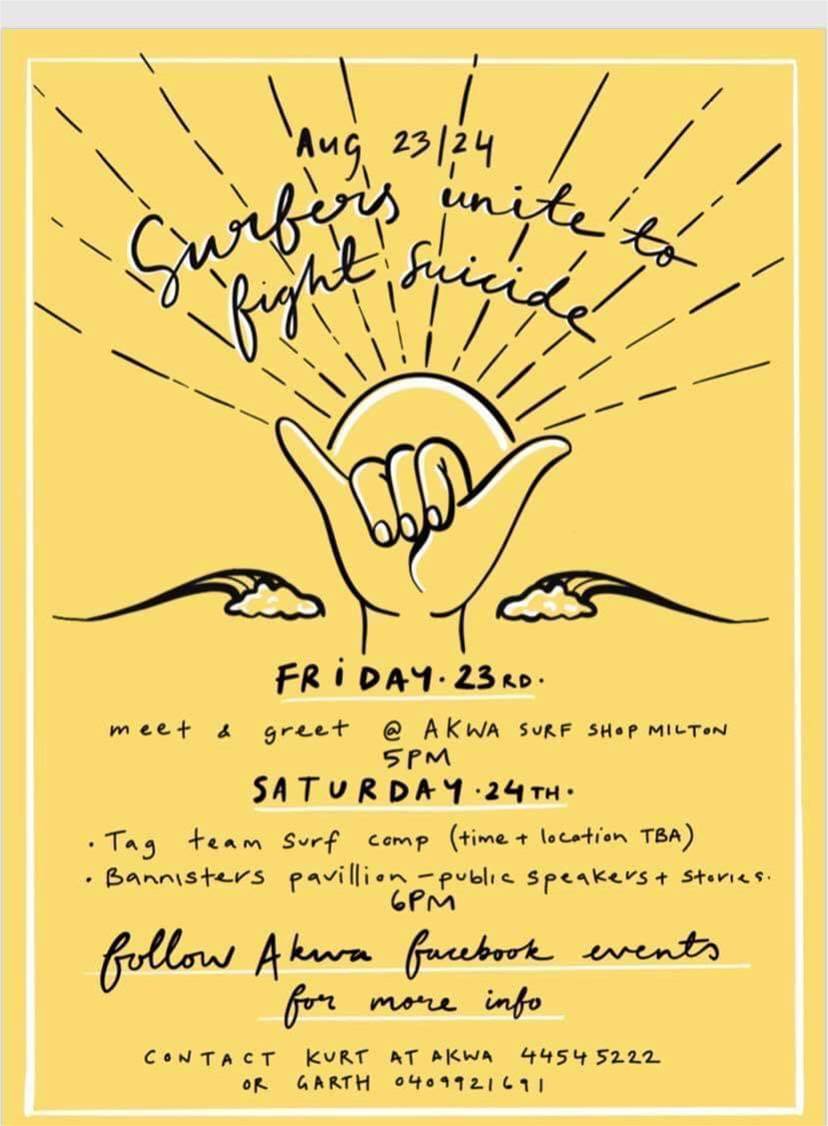 Aug 23/24
Surfers unite to
fight suicide
FRiDAY. 23RD.
meet & greet @ AKWA SURF SHOP MILTON
5PM
SATURDAY. 24TH.
• Tag team surf comp (time + location TBA)
• Bannisters pavillion - public speakers + stories.
6PM
follow Akwa facebook events
for more info
CONTACT KURT AT AKWA 44545222
OR GARTH 0409921691